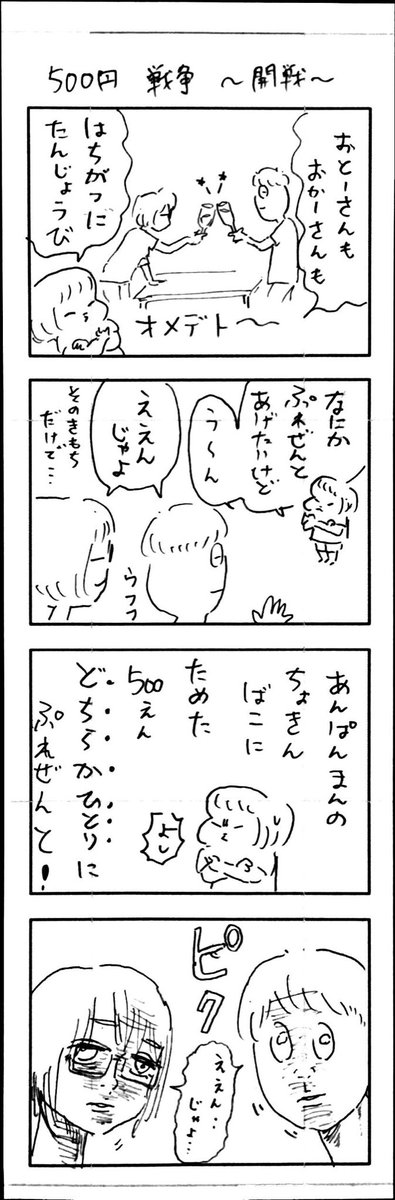 500円 戦争 〜開戦〜
おとーさんも
おかーさんも
はちがつに
たんじょうび
オメデト〜
なにか
ぷれぜんと
あげたいけど
う〜ん
ええん
じゃよ
そのきもち
だけで…
ウフフ
あんぱんまんの
ちょきん
ばこに
ためた
500えん
どちらかひとりに
ぷれぜんと!
よし
ピク
ええん‥
じゃよ…